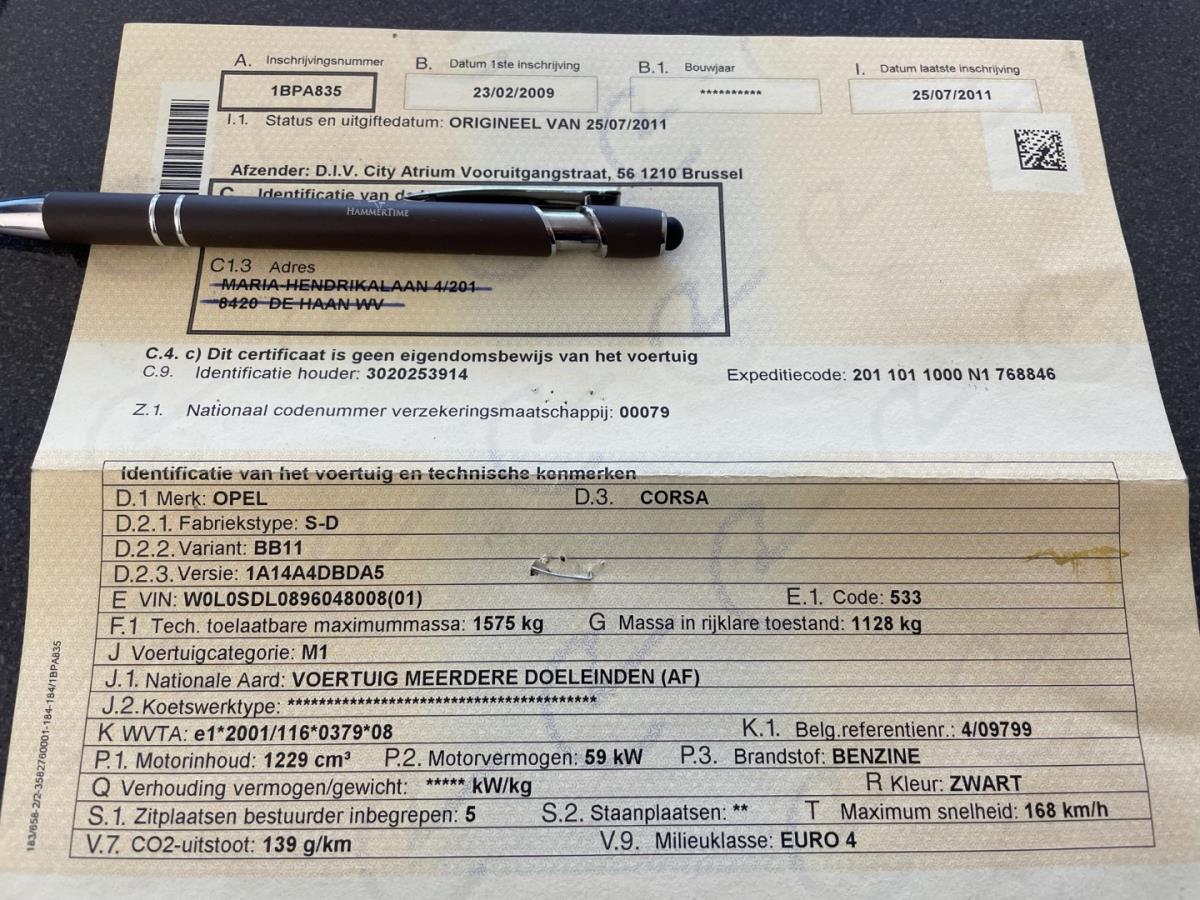 A. Inschrijvingsnummer B. Datum 1ste inschrijving B.1. Bouwjaar I. Datum laatste inschrijving
1BPA835 23/02/2009 ********** 25/07/2011
I.1. Status en uitgiftedatum: ORIGINEEL VAN 25/07/2011
Afzender: D.I.V. City Atrium Vooruitgangstraat, 56 1210 Brussel
C. Identificatie van
HAMMERTIME
C1.3 Adres
MARIA-HENDRIKALAAN 4/201
8420 DE HAAN WV
C.4. c) Dit certificaat is geen eigendomsbewijs van het voertuig
C.9. Identificatie houder: 3020253914 Expeditiecode: 201 101 1000 N1 768846
Z.1. Nationaal codenummer verzekeringsmaatschappij: 00079
Identificatie van het voertuig en technische kenmerken
D.1 Merk: OPEL D.3. CORSA
D.2.1. Fabriekstype: S-D
D.2.2. Variant: BB11
D.2.3. Versie: 1A14A4DBDA5
E VIN: W0L0SDL0896048008(01) E.1. Code: 533
F.1 Tech. toelaatbare maximummassa: 1575 kg G Massa in rijklare toestand: 1128 kg
J Voertuigcategorie: M1
J.1. Nationale Aard: VOERTUIG MEERDERE DOELEINDEN (AF)
J.2. Koetswerktype: ****************************************
K WVTA: e1*2001/116*0379*08 K.1. Belg.referentienr.: 4/09799
P.1. Motorinhoud: 1229 cm³ P.2. Motorvermogen: 59 kW P.3. Brandstof: BENZINE
Q Verhouding vermogen/gewicht: ***** kW/kg R Kleur: ZWART
S.1. Zitplaatsen bestuurder inbegrepen: 5 S.2. Staanplaatsen: ** T Maximum snelheid: 168 km/h
V.7. CO2-uitstoot: 139 g/km V.9. Milieuklasse: EURO 4
183/658-2/2-3582760001-184-184/1BPA835